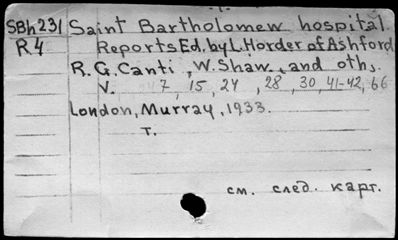 SBh231 Saint Bartholomew hospital.
R4 Reports Ed. by L. Horder of Ashford
R.G. Canti, W. Shaw, and oth,
V. 7, 15, 24, 28, 30, 41-42, 66
London, Murray, 1933.
т.
см. след. карт.